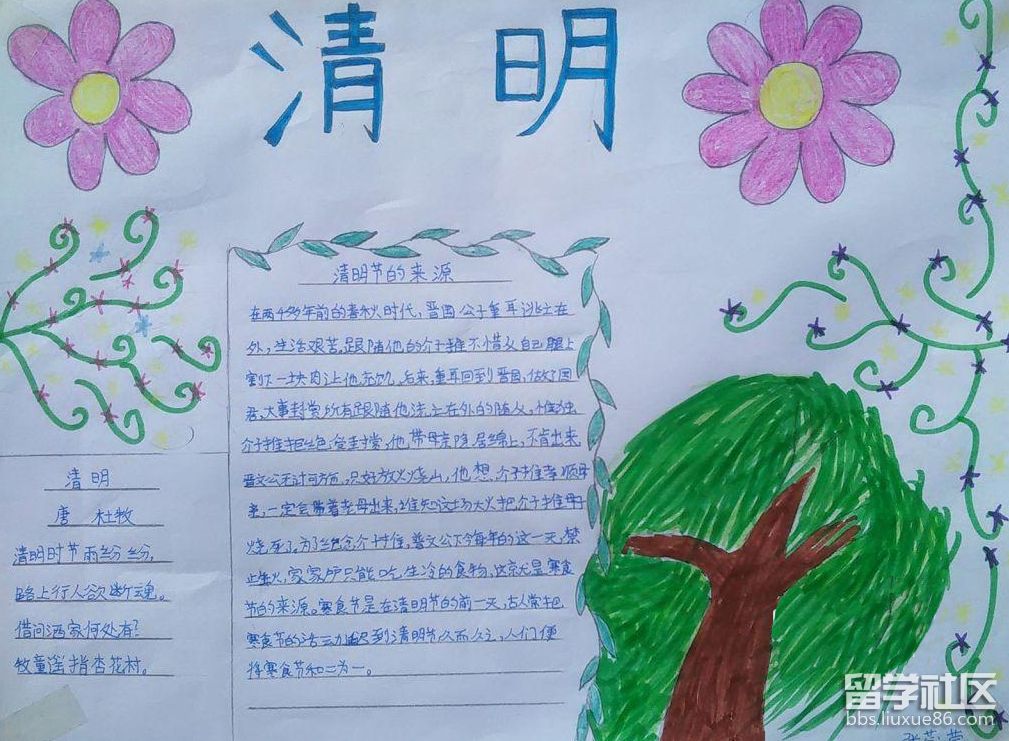 清明
清明
唐 杜牧
清明时节雨纷纷,
路上行人欲断魂。
借问酒家何处有?
牧童遥指杏花村。
清明节的来源
在两千多年前的春秋时代,晋国公子重耳逃亡在
外,生活艰苦,跟随他的介子推不惜从自己腿上
割下一块肉让他充饥。后来,重耳回到晋国,做了国
君,大事封赏所有跟随他流亡在外的随从,惟独
介子推拒绝受封赏,他带母亲隐居绵上,不肯出来,
晋文公无计可施,只好放火烧山,他想,介子推孝顺母
亲,一定会带着老母出来,谁知这场大火把介子推母子
烧死了。为了纪念介子推,晋文公下令每年的这一天,禁
止生火,家家户户只能吃生冷的食物,这就是寒食
节的来源。寒食节是在清明节的前一天,古人常把
寒食节的活动延迟到清明节,久而久之,人们便
将寒食节和二为一。
留学社区
bbs.liuxue86.com